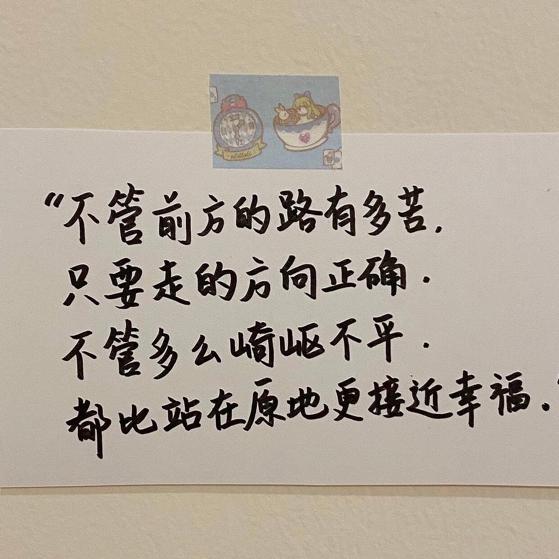 “不管前方的路有多苦，
只要走的方向正确．
不管多么崎岖不平．
都比站在原地更接近幸福．”